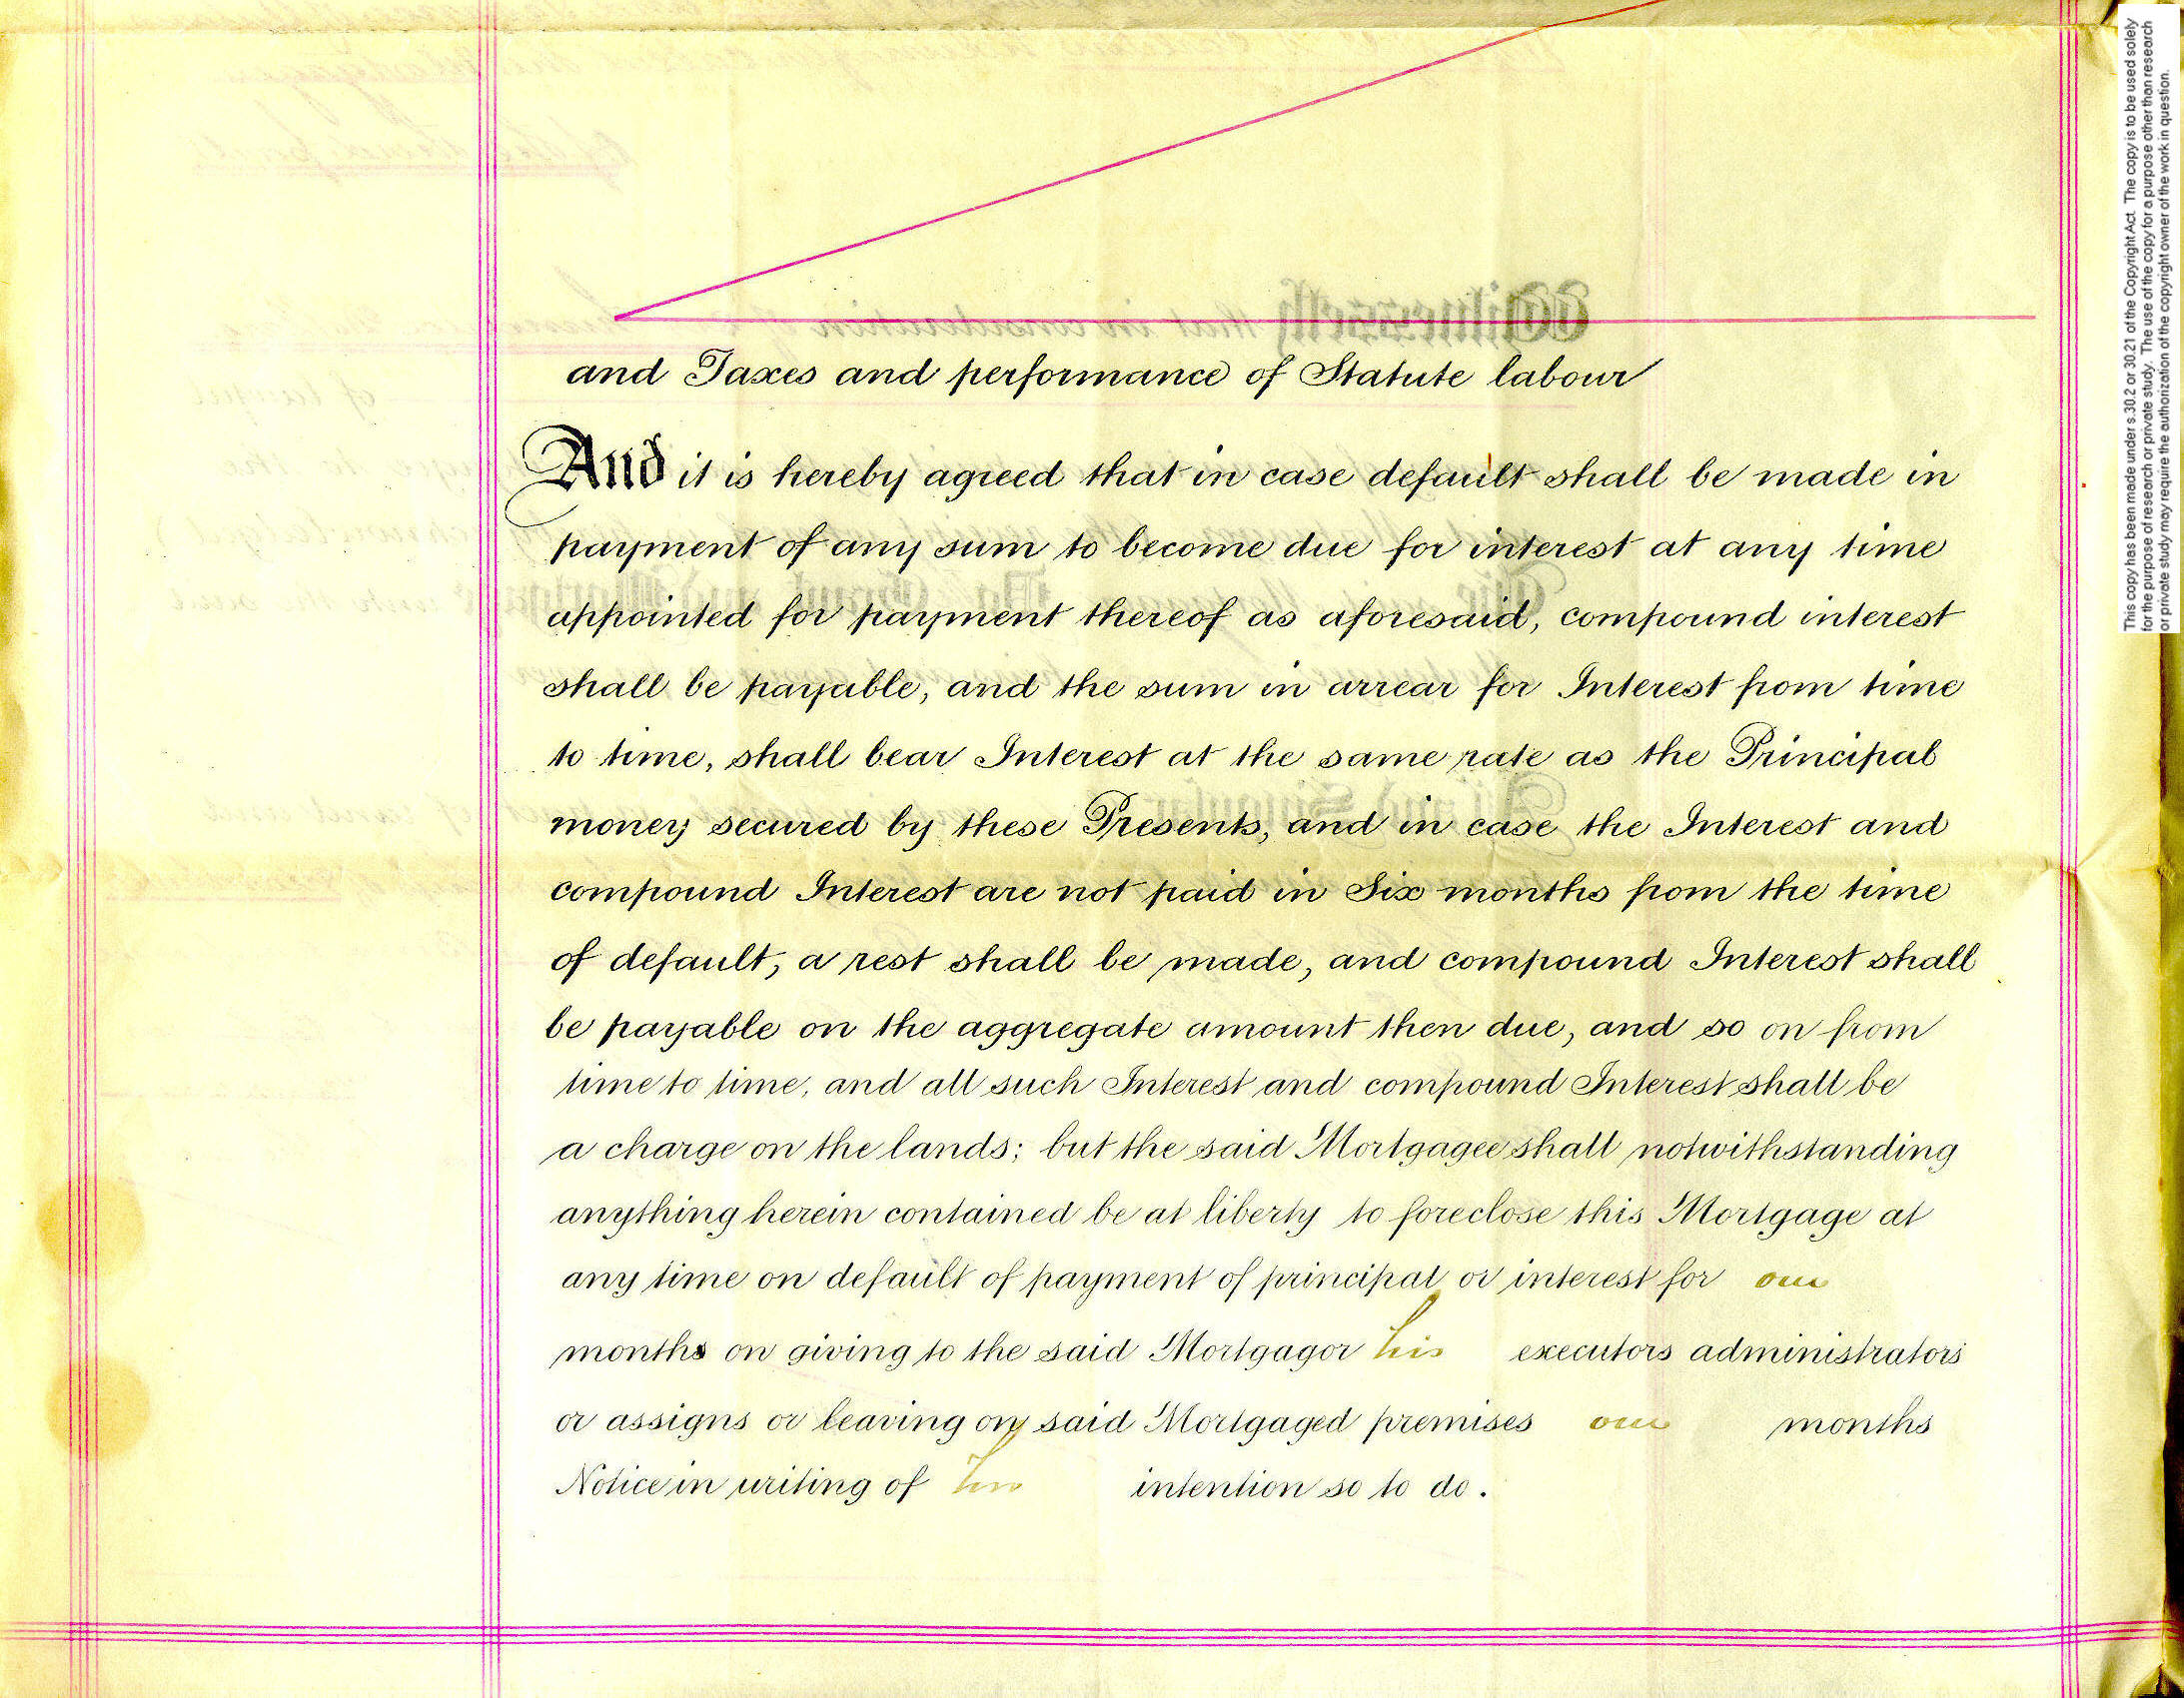 and Taxes and performance of Statute labour
And it is hereby agreed that in case default shall be made in
payment of any sum to become due for interest at any time
appointed for payment thereof as aforesaid, compound interest
shall be payable, and the sum in arrear for Interest from time
to time, shall bear Interest at the same rate as the Principal
money secured by these Presents, and in case the Interest and
compound Interest are not paid in Six months from the time
of default, a rest shall be made, and compound Interest shall
be payable on the aggregate amount then due, and so on from
time to time, and all such Interest and compound Interest shall be
a charge on the lands; but the said Mortgagee shall notwithstanding
anything herein contained be at liberty to foreclose this Mortgage at
any time on default of payment of principal or interest for one
months on giving to the said Mortgagor his executors administrators
or assigns or leaving on said Mortgaged premises one months
Notice in writing of his intention so to do.
This copy has been made under s.30.2 or 30.21 of the Copyright Act. The copy is to be used solely
for the purpose of research or private study. The use of the copy for a purpose other than research
or private study may require the authorization of the copyright owner of the work in question.